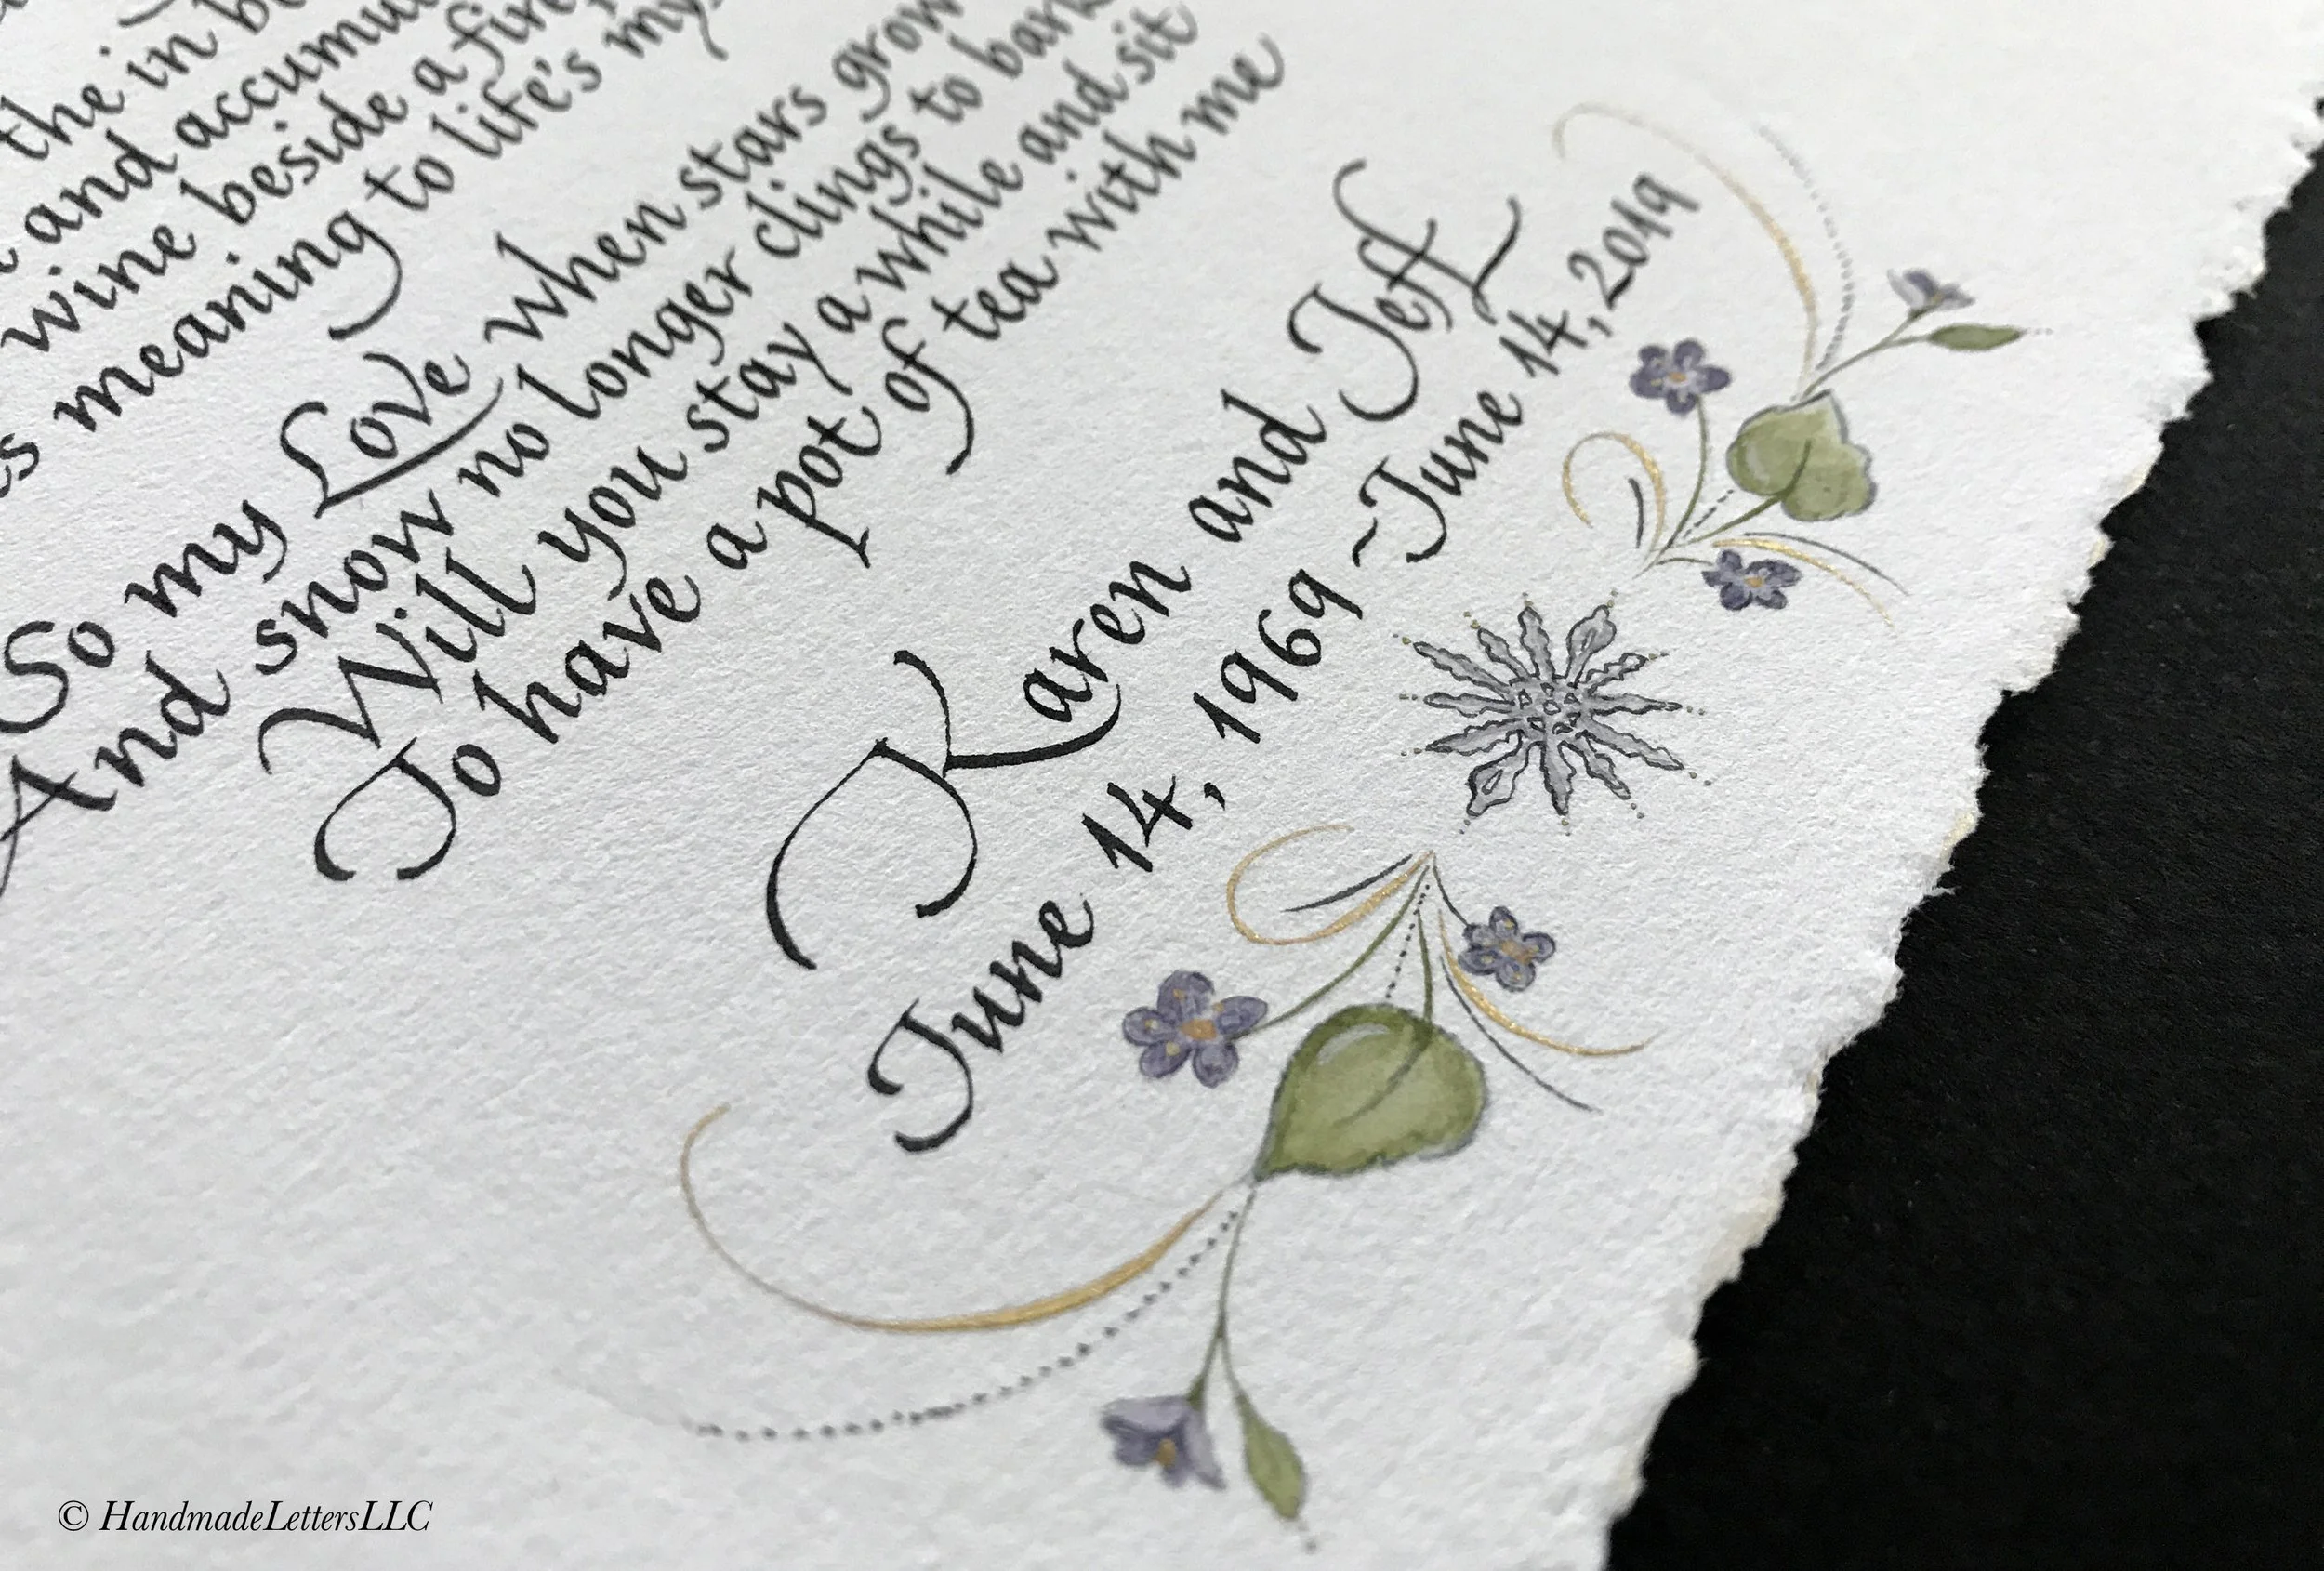 the in
and
wine beside a
meaning to life's
So my Love when stars
And snow no longer clings to
Will you stay a while and sit
To have a pot of tea with me
Karen and Jeff
June 14, 1969 ~ June 14, 2019
© HandmadeLettersLLC